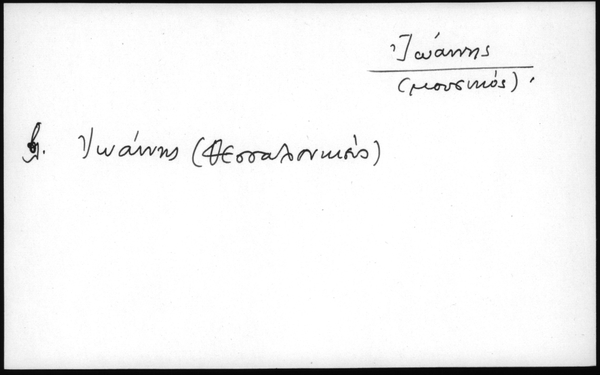 Ἰωάννης
(μουσικός).
β. Ἰωάννης (Θεσσαλονικεὺς)